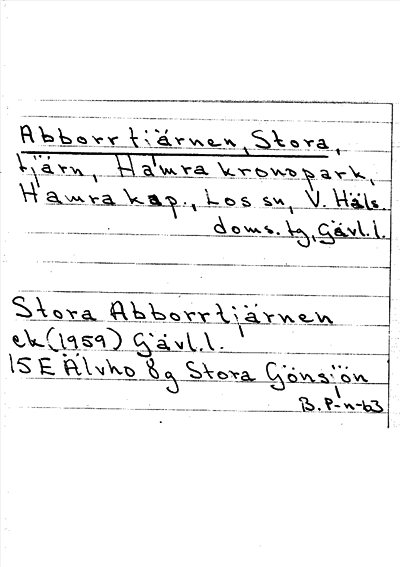 Abborrtjärnen, Stora,
tjärn, Hamra kronopark,
Hamra kap., Los sn, V. Häls.
doms. tg, Gävl. l.
Stora Abborrtjärnen
ek (1959) Gävl. l.
15E Älvho 8g Stora Gönsjön
B. P-n-63